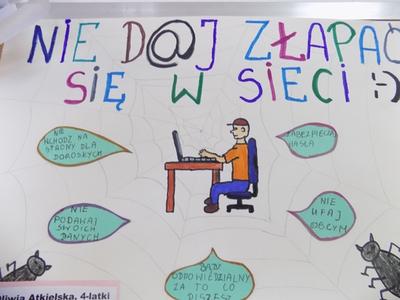 NIE D@J ZŁAPAĆ
SIĘ W SIECI :-)
NIE
WCHODŹ NA
STRONY DLA
DOROSŁYCH
ZABEZPIECZAJ
HASŁA
NIE
PODAWAJ
SWOICH
DANYCH
NIE
UFAJ
OBCYM
BĄDŹ
ODPOWIEDZIALNY
ZA TO CO
PISZESZ
Oliwia Atkielska, 4-latki